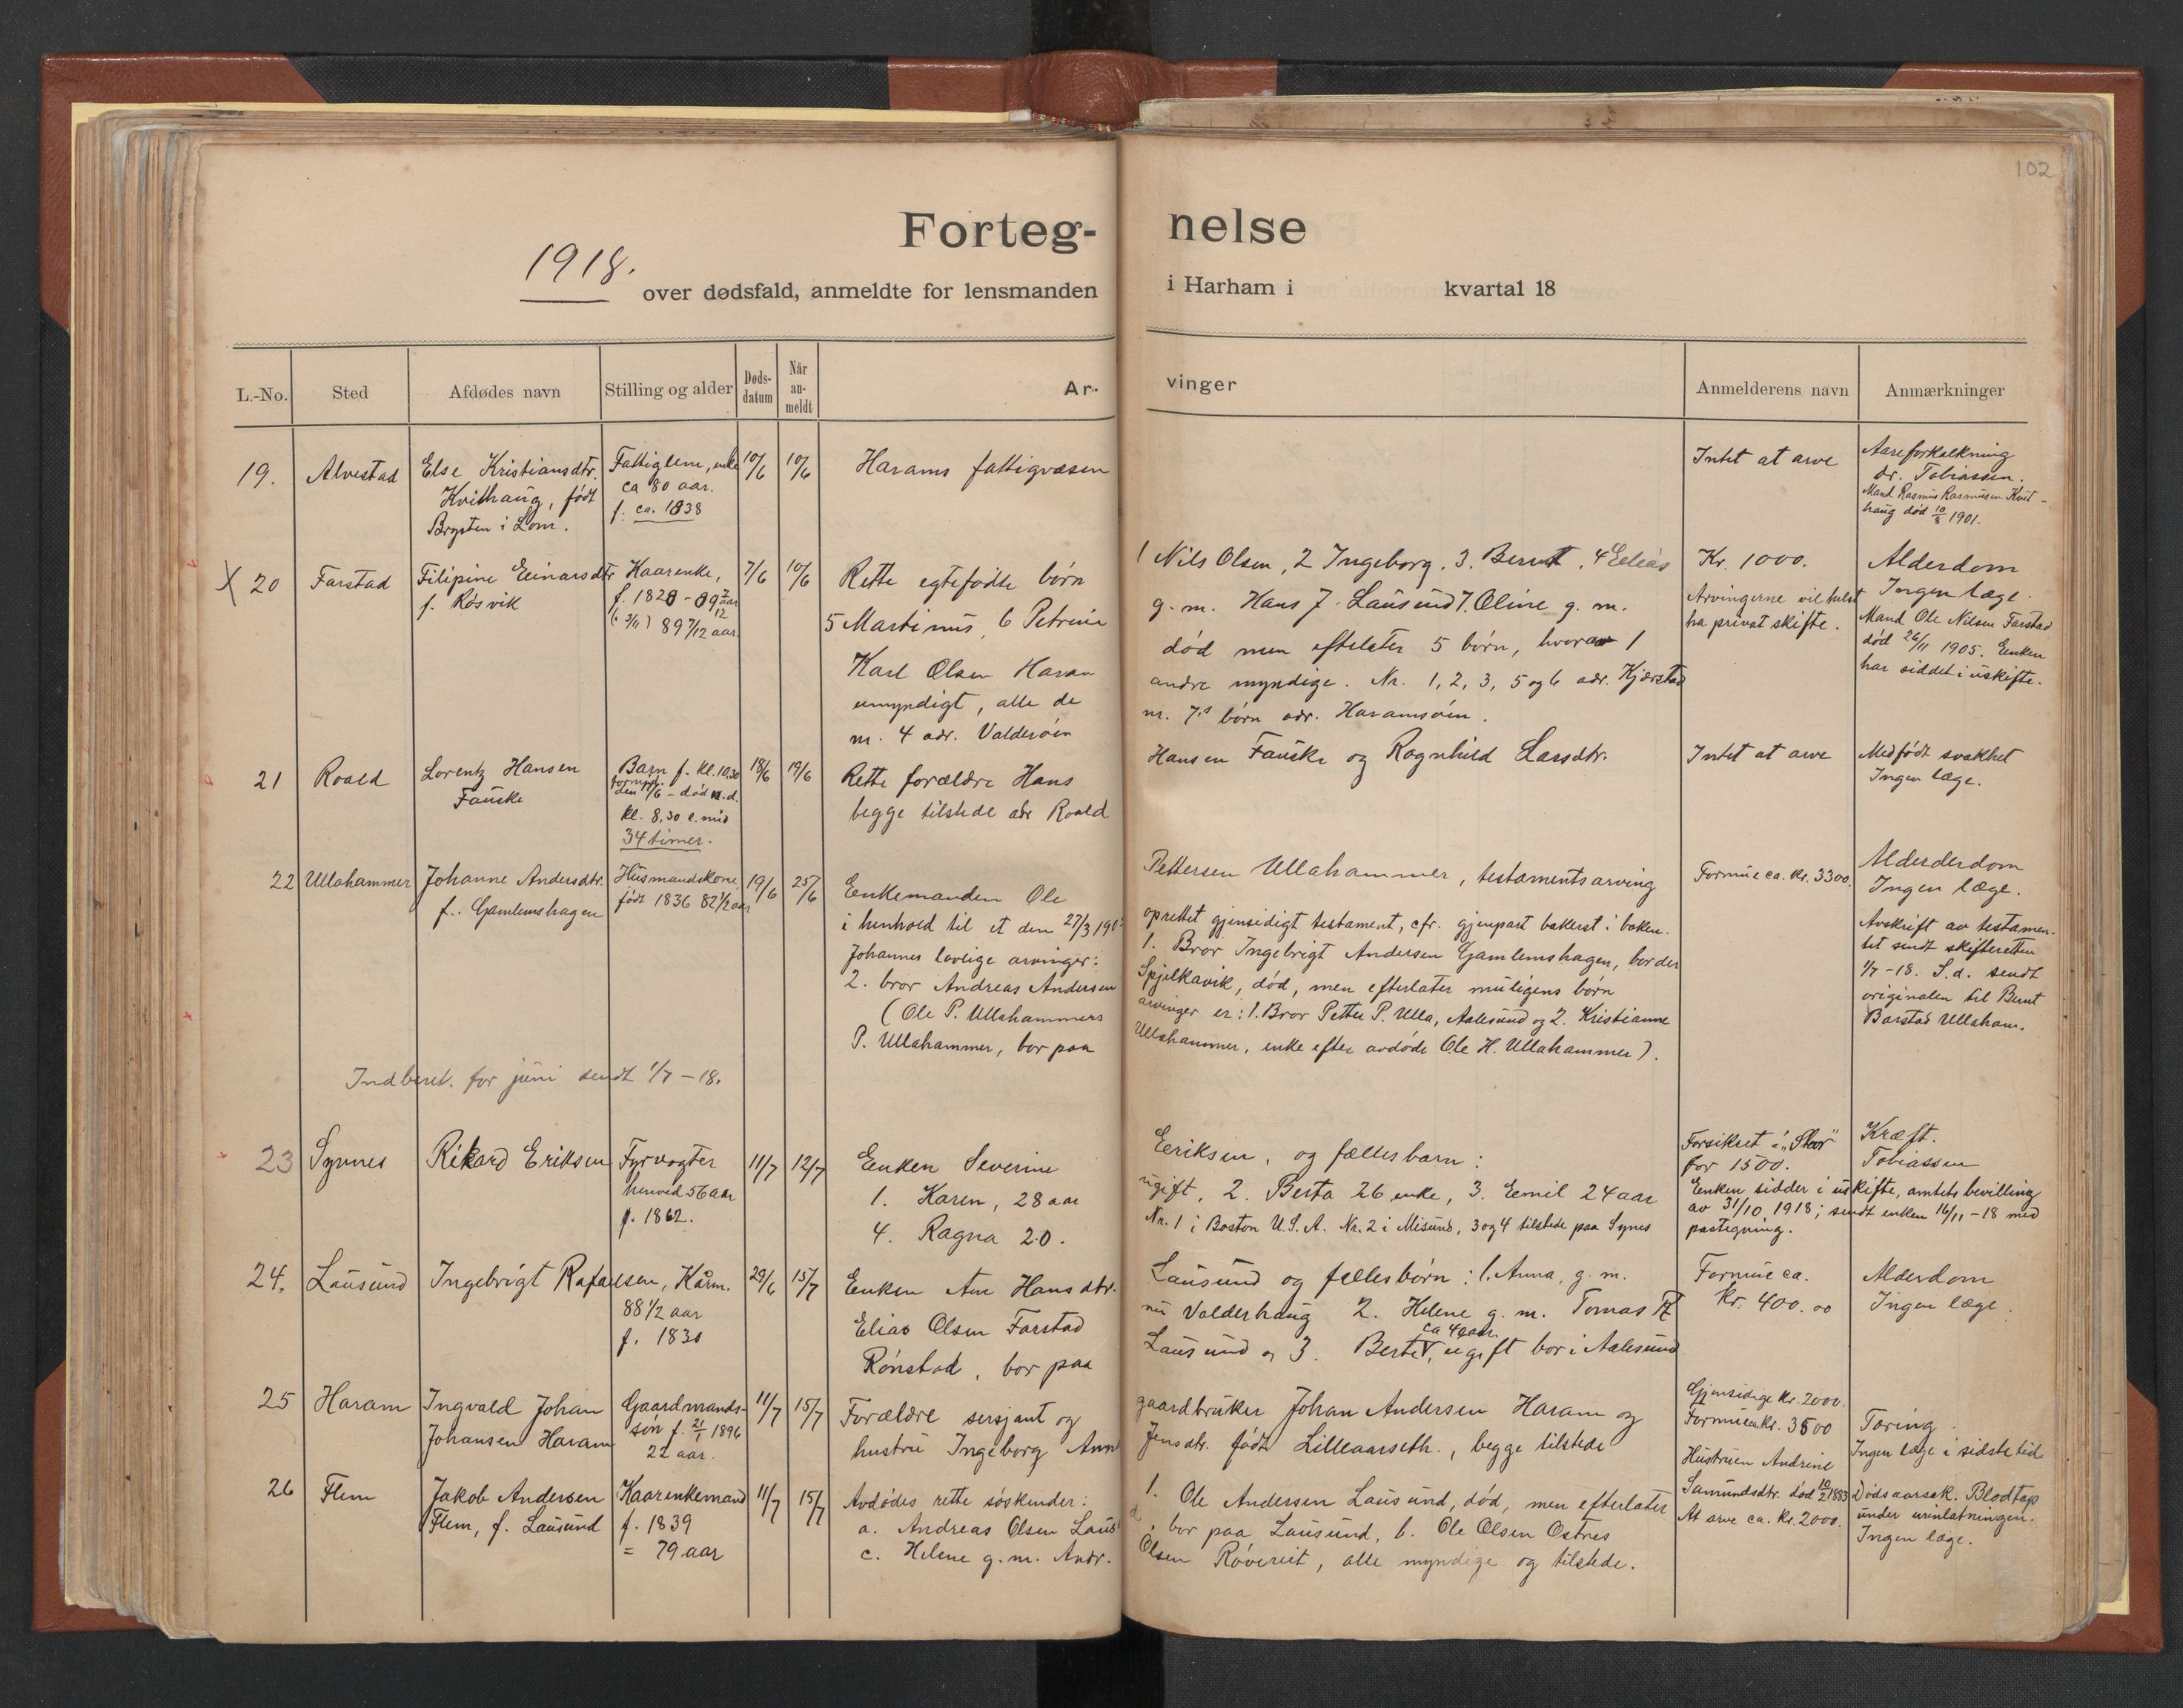 102
Forteg-nelse
1918.
over dødsfald, anmeldte for lensmanden i Harham i kvartal 18
L.-No. Sted Afdødes navn Stilling og alder Døds-datum Når an-meldt Ar-vinger Anmelderens navn Anmærkninger
19. Alvestad Else Kristiansdtr. Fattiglem, enke 10/6 10/6 Harams fattigvæsen Intet at arve Aareforkalkning
Kvithaug, født ca 80 aar. Dr. Tobiassen.
Brysten i Lom. f. ca. 1838 Mand Rasmus Rasmussen Kvit-
haug død 10/8 1901.
X 20 Farstad Filipine Einarsdtr Kaarenke, 7/6 10/6 Rette egtefødte børn 1 Nils Olsen, 2 Ingeborg, 3. Bernt, 4 Eelias Kr. 1000. Alderdom
f. Røsvik f. 1828 - 89 7/12 aar 5 Martinus, 6 Petrine g. m. Hans J. Lausund 7. Oline g. m. Arvingerne vil helst Ingen læge.
(f. 3/11) 89 7/12 aar. ha privat skifte. Mand Ole Nilsen Farstad
Karl Olsen Haram død men efterlater 5 børn, hvorav 1 død 26/11 1905. Enken
umyndigt, alle de andre myndige. Nr. 1, 2, 3, 5 og 6 adr. Kjerstad har siddet i uskifte.
nr. 4 adr. Valderøen nr. 7's børn adr. Haramsøen.
21 Roald Lorentz Hansen Barn f. kl. 10,30 18/6 19/6 Rette forældre Hans Hansen Fauske og Ragnhild Larsdtr. Intet at arve Medfødt svakhet
Fauske formid. den 17/6 - død n. d. begge tilstede adr Roald Ingen læge.
kl. 8,30 e. mid
34 timer.
22 Ullahammer Johanne Andersdtr. Husmandskone, 19/6 25/6 Enkemanden Ole Pettersen Ullahammer, testamentsarving Formue ca. kr. 3300. Alderderdom
f. Gamlemshagen født 1836 82 1/2 aar Ingen læge.
i henhold til et den 27/3 190 oprettet gjensidigt testament, cfr. gjenpart bakerst i boken. Avskrift av testamen-
Johannes lovlige arvinger: 1. Bror Ingebrigt Andersen Gamlemshagen, bor der tet sendt skifteretten
2. bror Andreas Andersen Spjelkavik, død, men efterlater muligens børn 1/7-18. S.d. sendt
(Ole P. Ullahammers arvinger er: 1. Bror Petter P. Ulla, Aalesund og 2. Kristianne originalen til Bernt
P. Ullahammer, bor paa Ullahammer, enke efter avdøde Ole H. Ullahammer). Barstad Ullaham.
Indberet. for juni sendt 1/7-18.
23 Synnes Rikard Eriksen Fyrvogter 11/7 12/7 Enken Severine Eeriksen, og fællesbarn: Forsikret i "Stor" Kræft.
henved 56 aar 1. Karen, 28 aar ugift, 2. Berta 26 enke, 3. Eemil 24 aar for 1500. Tobiassen
f. 1862. 4. Ragna 20. Nr. 1 i Boston U.S.A. Nr. 2 i Misund, 3 og 4 tilstede paa Synes Enken sidder i uskifte, amtets bevilling
av 31/10 1918; sendt enken 16/11-18 med
paategning.
24. Lausund Ingebrigt Rafaelsen, Kårm. 29/6 15/7 Enken Ane Hansdtr. Lausund og fellesbørn: 1. Anna, g. m. Formue ca. Alderdom
88 1/2 aar Elias Olsen Farstad nu Valderhaug 2. Helene g. m. Tomas kr. 400.00 Ingen læge.
f. 1830 Rønstad, bor paa Lausund og 3. Berte, ca 40 aar. ugift bor i Aalesund
25 Haram Ingvald Johan Gaardmands- 11/7 15/7 Forældre sersjant og gaardbruker Johan Andersen Haram og Gjensidige kr. 2000.
Johansen Haram søn f. 21/1 1896 hustru Ingeborg Anne Jensdtr. født Lilleaarseth., begge tilstede Formue ca kr. 3500 Tæring
22 aar. Ingen læge i sidste tid
26 Flem Jakob Andersen Kaarenkemand 11/7 15/7 Avdødes rette søskender: 1. Ole Andersen Lausund, død, men efterlater Hustruen Andrine
Flem, f. Lausund f. 1839 a. Andreas Olsen Laus d, bor paa Lausund, b. Ole Olsen Ostnes Samundsdtr. død 10/2 1883 Dødsaarsak. Blodtap
= 79 aar c. Helene g. m. Andr. Olsen Røvereit, alle myndige og tilstede. At arve ca. kr. 2000. under urinlatningen.
Ingen læge.